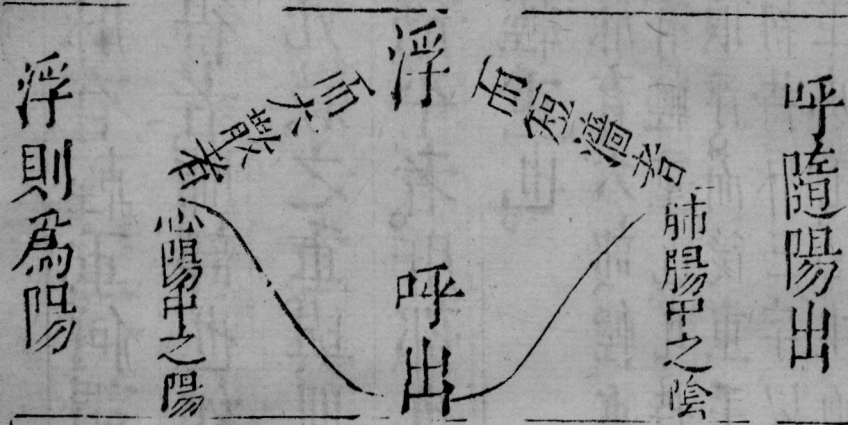 呼隨陽出
浮
而短濇者
肺腸中之陰
而大散者
心陽中之陽
呼出
浮則為陽